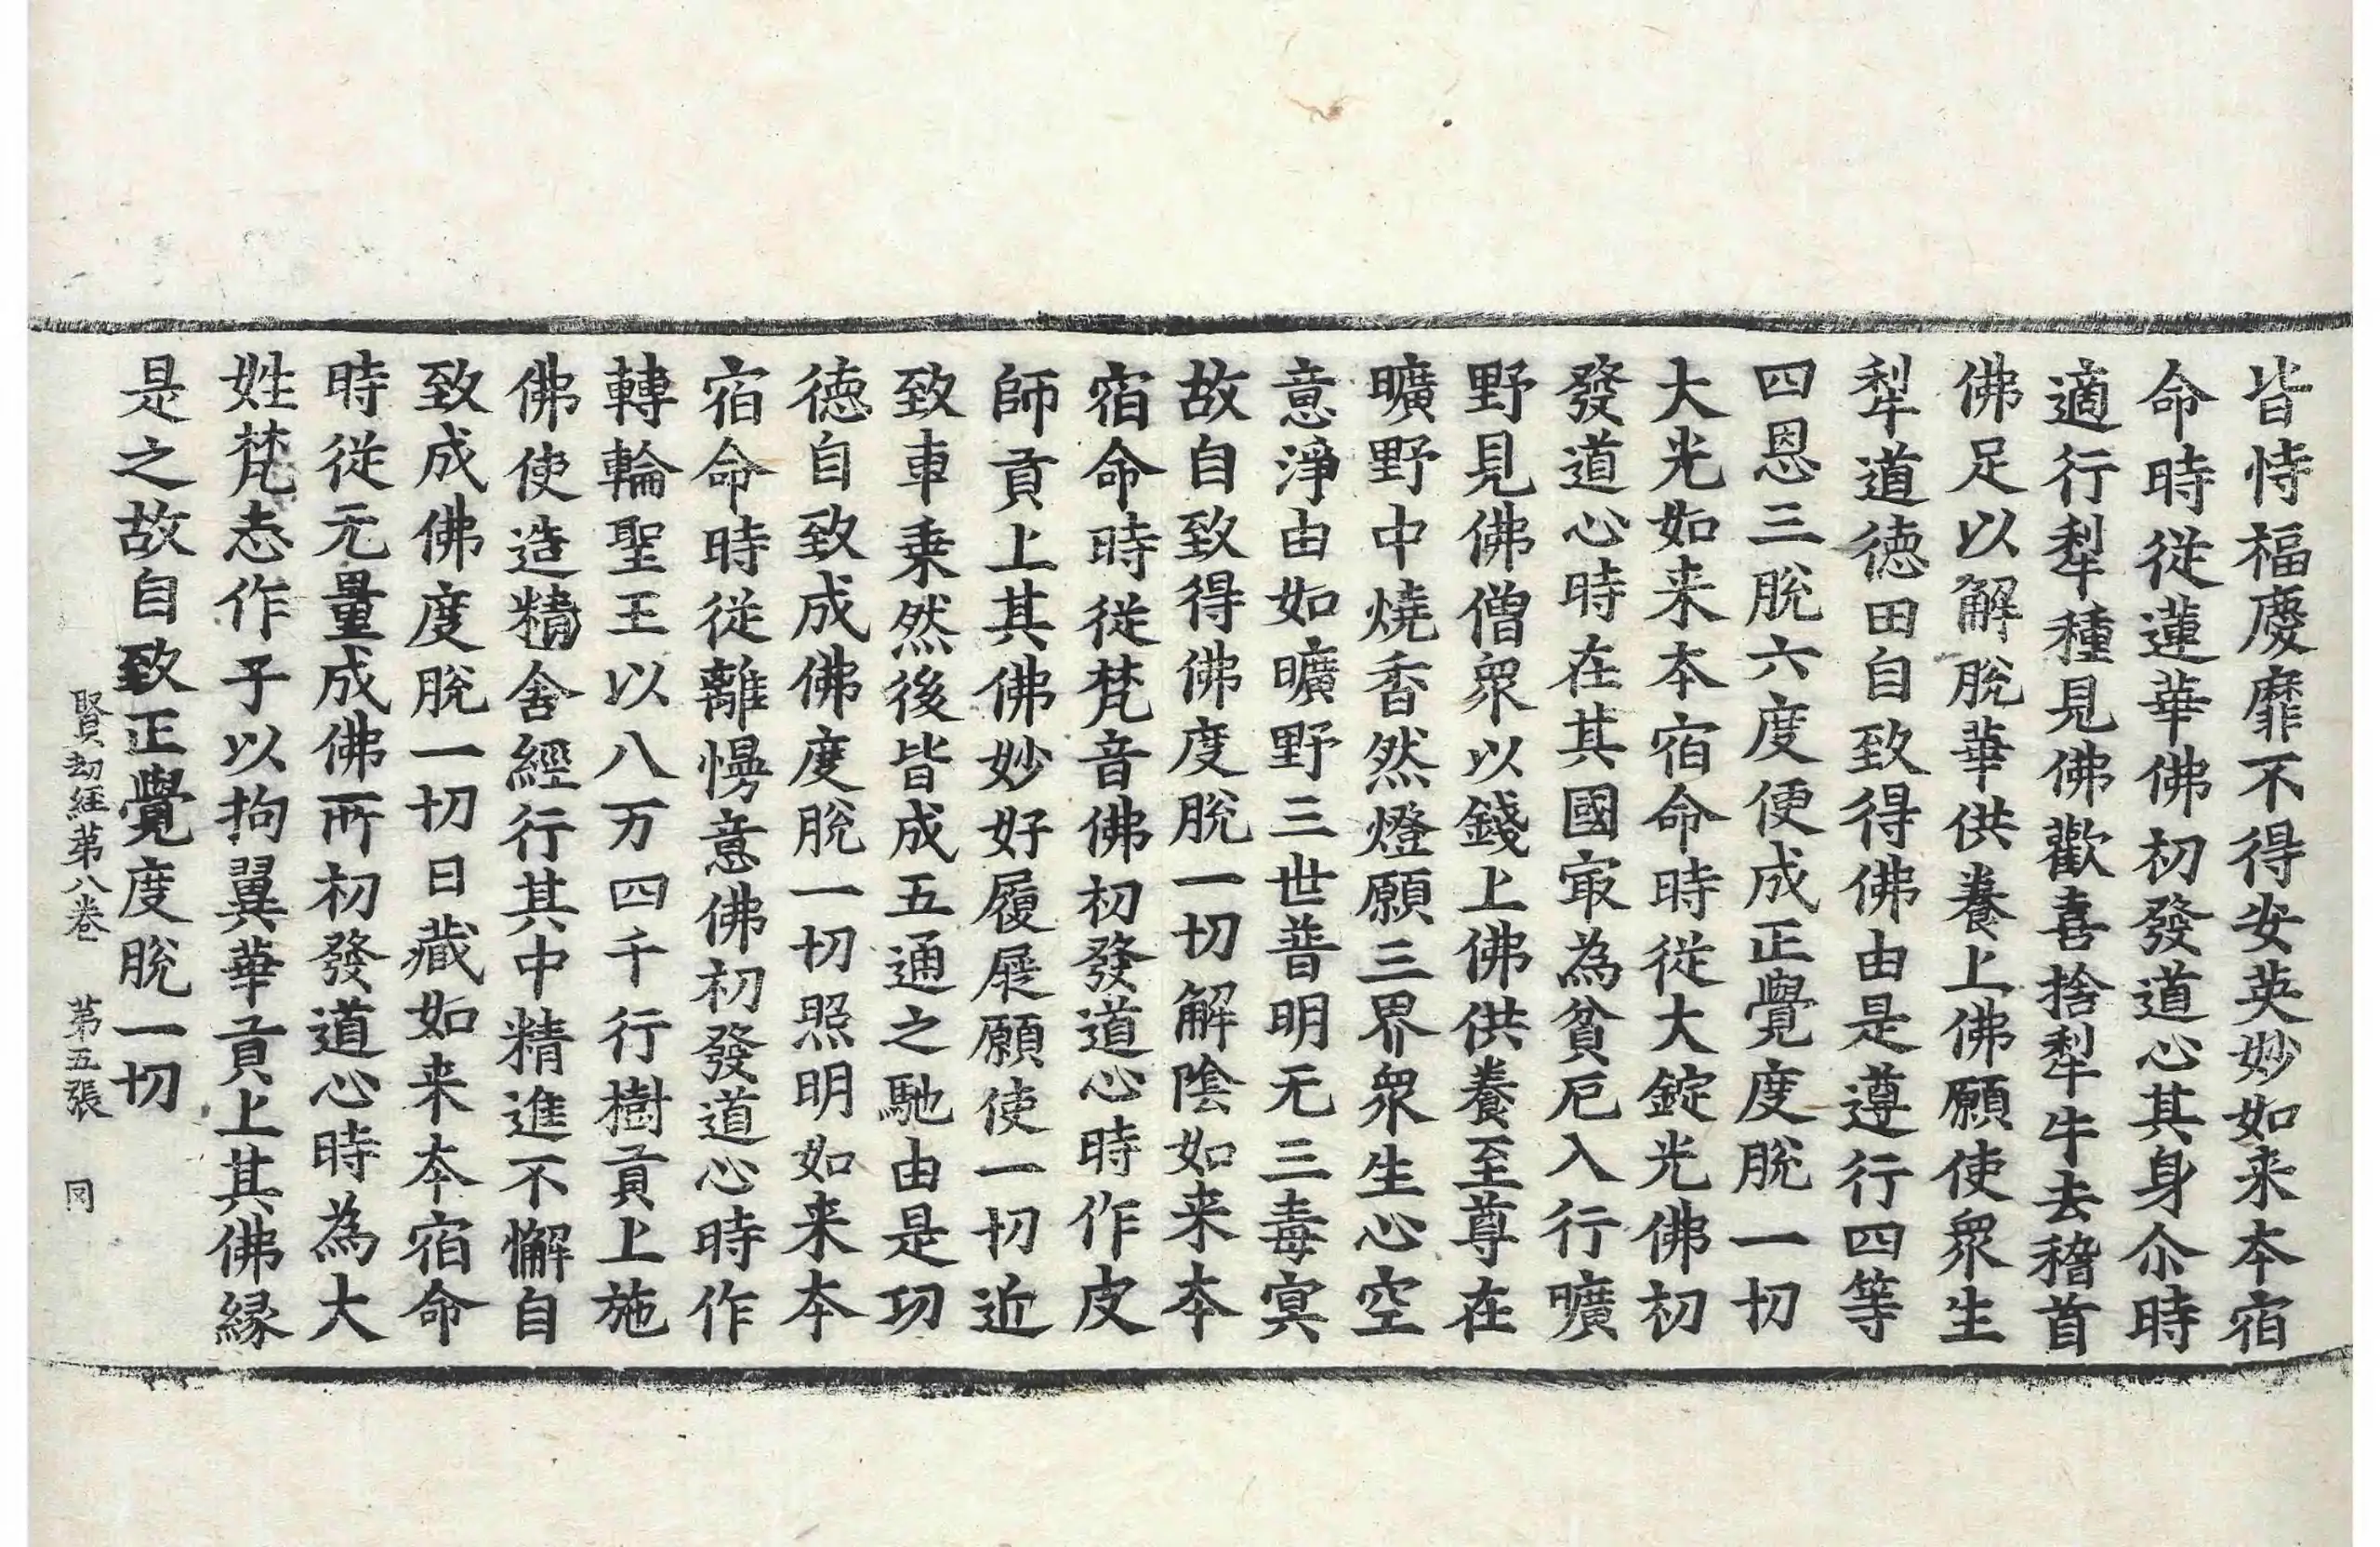 皆恃福慶靡不得安英妙如来夲宿
命時從蓮華佛初發道心其身尒時
適行犁種見佛歡喜捨犁牛去稽首
佛足以解脫華供養上佛願使衆生
犁道德田自致得佛由是遵行四等
四恩三脫六度便成正覺度脫一切
大光如来夲宿命時從大錠光佛初
發道心時在其國㝡為貧厄入行曠
野見佛僧衆以錢上佛供養至尊在
曠野中燒香然燈願三界衆生心空
意淨由如曠野三世普明无三毒冥
故自致得佛度脫一切解陰如来夲
宿命時從梵音佛初發道心時作皮
師貢上其佛妙好履屣願使一切近
致車乗然後皆成五通之馳由是功
德自致成佛度脫一切照明如来夲
宿命時從離慢意佛初發道心時作
轉輪聖王以八万四千行樹貢上施
佛使造精舍經行其中精進不懈自
致成佛度脫一切日藏如来夲宿命
時從无量成佛所初發道心時為大
姓梵志作子以拘翼華貢上其佛緣
是之故自致正覺度脫一切
賢劫經第八卷 第五張 同